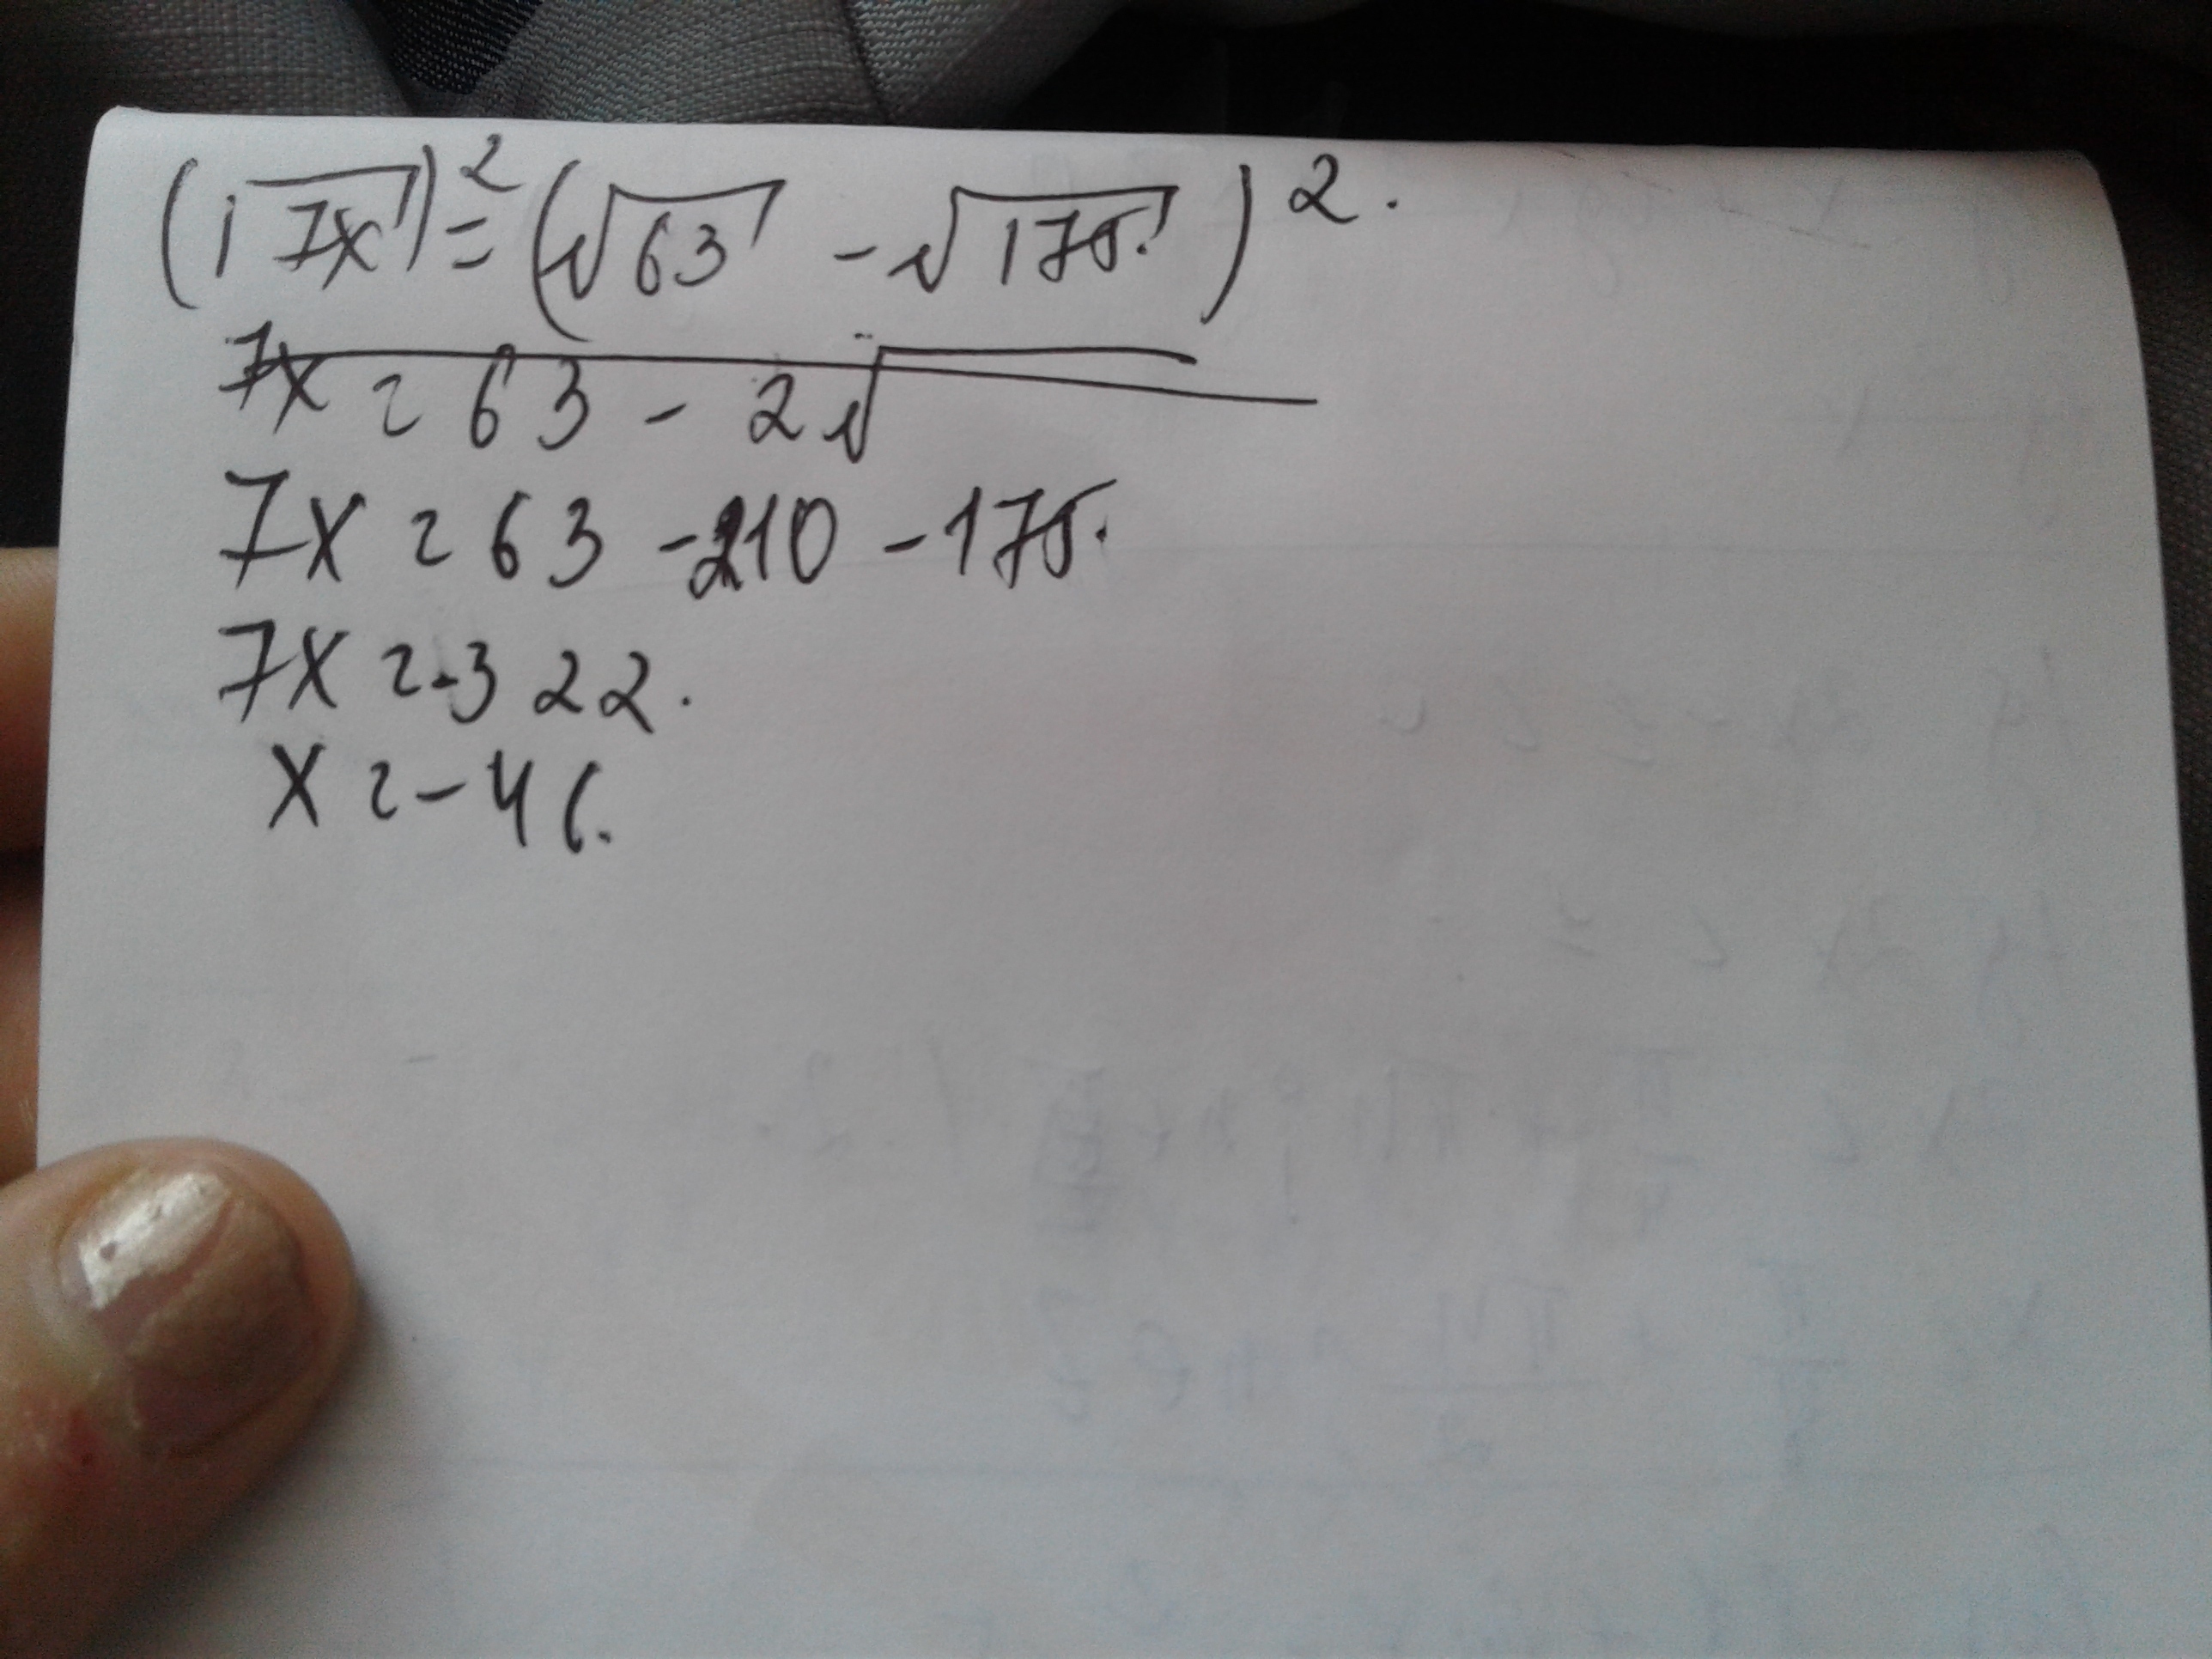 (√7x)² = (√63 - √175.)².
7x = 63 - 2√
7x = 63 - 210 - 175.
7x = -322.
x = -46.